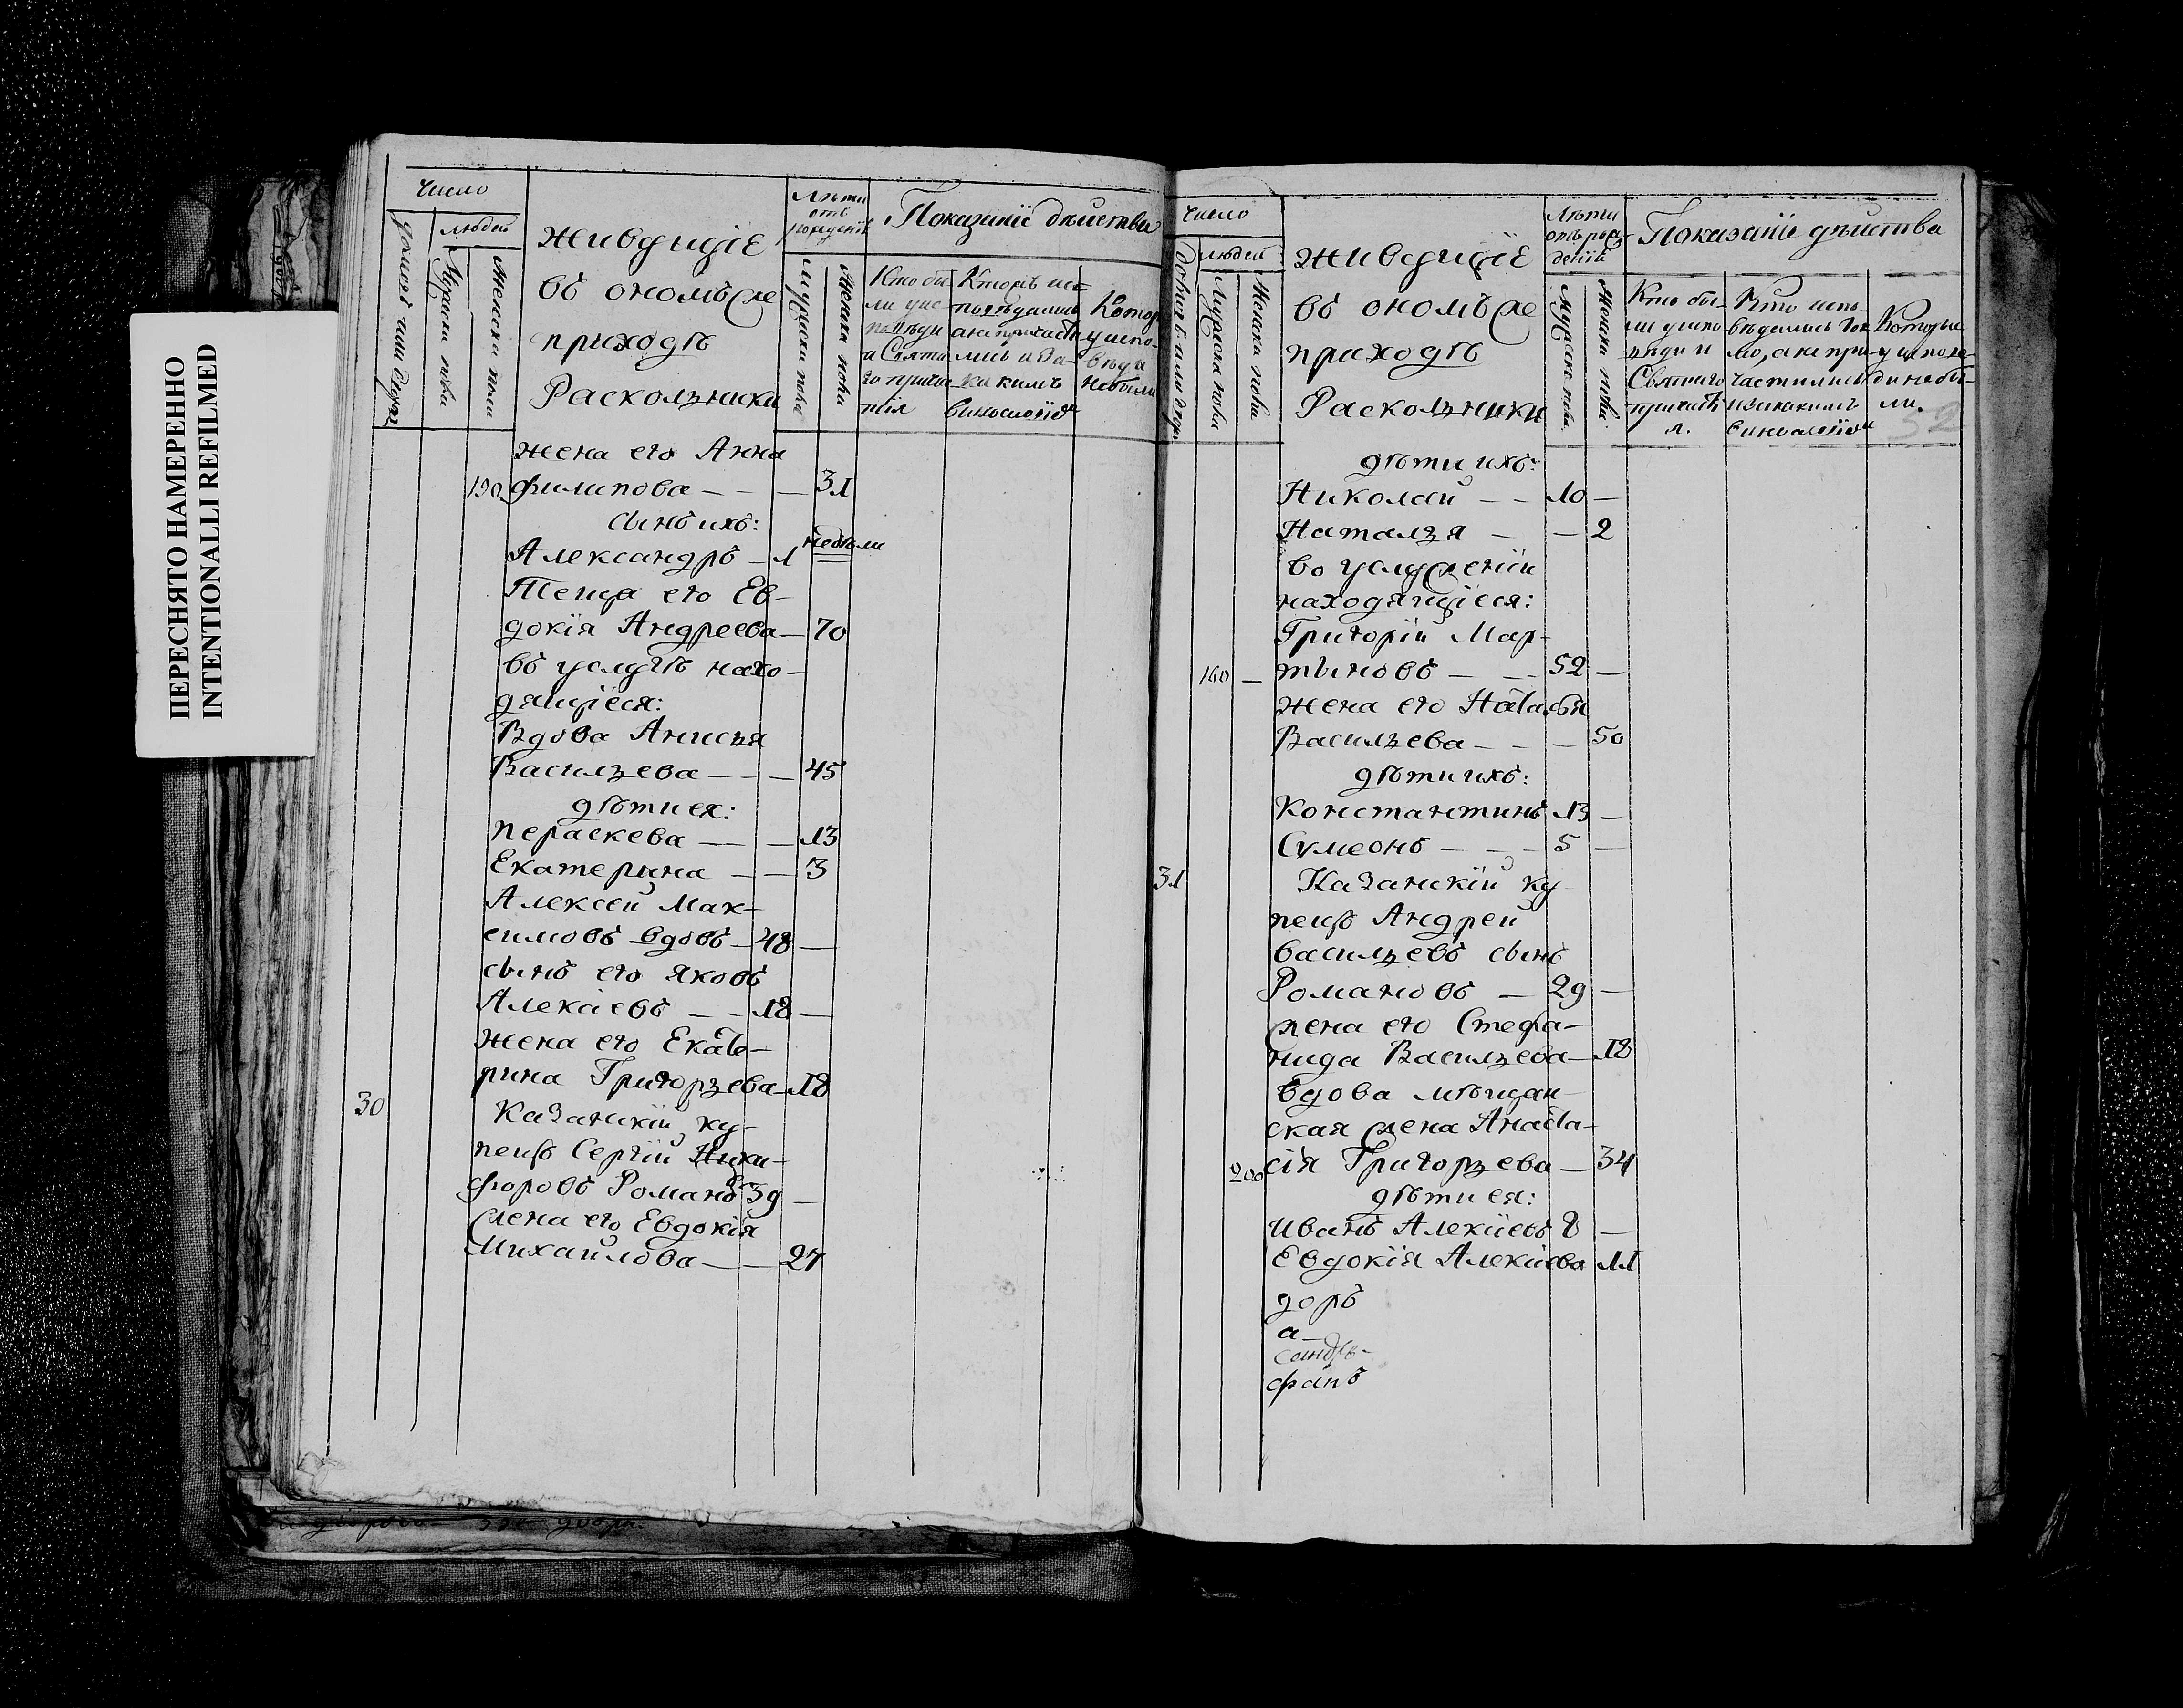 ПЕРЕСНЯТО НАМЕРЕННО
INTENTIONALLI REFILMED
Число
людей
Живущіе
въ ономъ же
приходѣ
Раскольники
Лѣта
отъ
рожденія
Показаніе дѣйства
домовъ или двор
Мужеска пола
Женска пола
Мужска пола
Женска пола
Кто бы-
ли у ис-
повѣди
и Свята-
го прича-
тія
Кторъ ис-
повѣдались
а не причасти-
лись и за-
какимъ
винословіем
Котор
у испо-
вѣди
небыли
жена его Анна
190 филипова — — — 31
сынъ ихъ:
Александръ — 1 недѣли
Теща его Ев-
докія Андреева — 70
въ услугѣ нахо-
дящіеся:
Вдова Анисья
Васильева — — — 45
дѣти ея:
Пераскева — — 13
Екатерина — — 3
Алексей Мак-
симовъ вдовъ — 48 —
сынъ его Яковъ
Алексіевъ — — 18 —
жена его Екате-
рина Григорьева — 18
30 Казанскій ку-
пецъ Сергій Ники-
форовъ Романовъ 39 —
жена его Евдокія
Михайлова — — 27
Число
людей
Живущіе
въ ономъ же
приходѣ
Раскольники
Лѣта
отъ рож-
денія
Показаніе дѣйства
домовъ или двор
Мужска пола
Женска пола
Мужско пола
Женска пола
Кто бы-
ли у испо-
вѣди и
Святаго
причасті
я.
Кто испо-
вѣдались ток
мо, а не при-
частились
и за какимъ
винословіем
Которые
у исповѣ-
ди небы-
ли.
52
дѣти ихъ:
Николай — — 10 —
Наталья — — 2
во услуженіи
находящіеся:
Григорій Мар-
160 — тыновъ — — 52 —
жена его Наталья
Васильева — — — 50
дѣти ихъ:
Константинъ 13 —
Сѵмеонъ — — — 5 —
31 Казанскій ку-
пецъ Андрей
васильевъ сынъ
Романовъ — 29 —
жена его Стефа-
нида Васильева — 18
вдова мѣщан-
ская жена Анаста-
200 сія Григорьева — 34
дѣти ея:
Иванъ Алексіевъ 8 —
Евдокія Алексіева 11
доръ
а —
фанъ